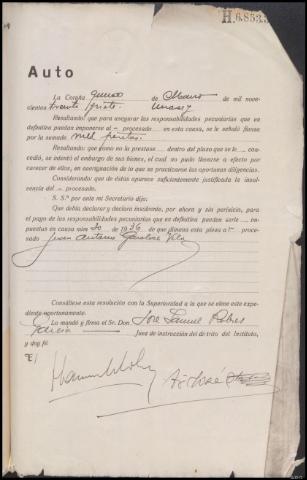 H.6853
Auto
La Coruña quince de Marzo de mil nove-
cientos treinta y siete
Resultando: que para asegurar las responsabilidades pecuniarias que en
definitiva puedan imponerse al procesado en esta causa, se le señaló fianza
por la suma de mil pesetas.
Resultando: que como no la prestase dentro del plazo que se le con-
cedió, se intentó el embargo de sus bienes, el cual no pudo llevarse a efecto por
carecer de ellos, en consignación de lo que se practicaron las oportunas diligencias.
Considerando: que de éstas aparece suficientemente justificada la insol-
vencia del procesado.
S. Sª por ante mí Secretario dijo:
Que debía declarar y declara insolvente, por ahora y sin perjuicio, para
el pago de las responsabilidades pecuniarias que en definitiva puedan serle
puestas en causa núm. 30 de 1936 de que dimana esta pieza a procesado
Juan Antonio Vila
Consúltese esta resolución con la Superioridad a la que se eleve este expe-
diente oportunamente.
Lo mandó y firma el Sr. Don José Samuel Robres
García Juez de instrucción del distrito del Instituto,
y doy fé.
E/
José